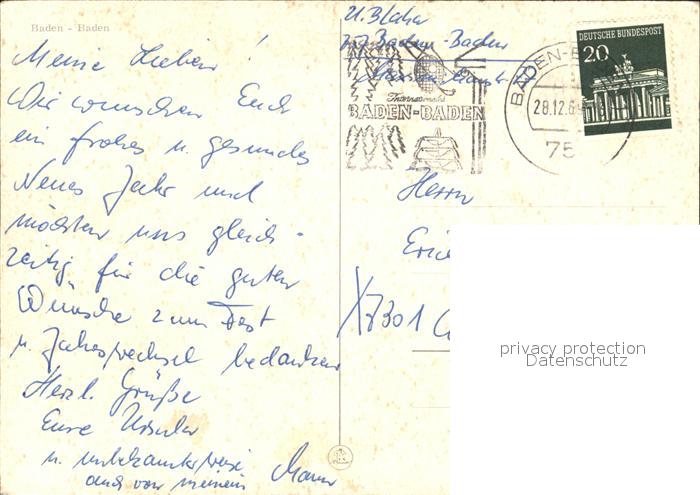 Baden - Baden
Meine Lieben!
Wir wünschen Euch
ein frohes u. gesundes
Neues Jahr und
möchten uns gleich-
zeitig für die guten
Wünsche zum Fest
u. Jahreswechsel bedanken
Herzl. Grüße
Eure Ursula
u. unbekannterweise
auch von meinem Mann
Baden-Baden
BADEN-BADEN
DEUTSCHE BUNDESPOST
20
BADEN-B
28.12.6
75
Herrn
X7301
privacy protection
Datenschutz